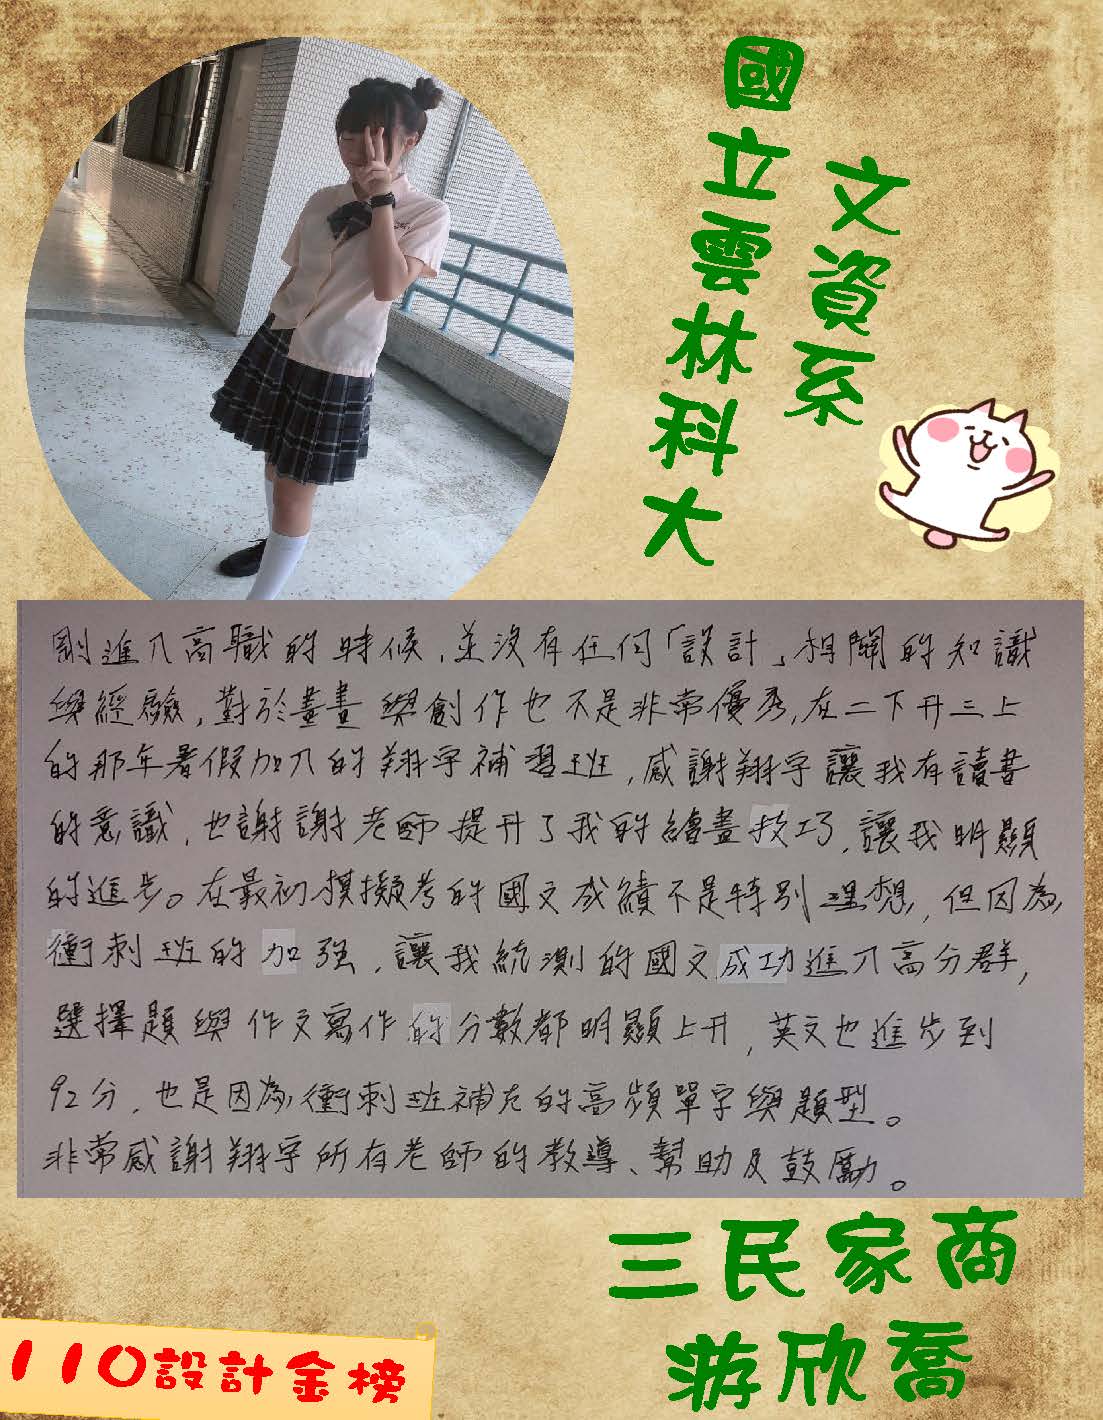 國立雲林科大
文資系
剛進入高職的時候，並沒有任何「設計」相關的知識
與經驗，對於畫畫與創作也不是非常優秀，在二下升三上
的那年暑假加入的翔宇補習班，感謝翔宇讓我有讀書
的意識，也謝謝老師提升了我的繪畫技巧，讓我明顯
的進步。在最初模擬考的國文成績不是特別理想，但因為
衝刺班的加強，讓我統測的國文成功進入高分群，
選擇題與作文寫作的分數都明顯上升，英文也進步到
92分，也是因為衝刺班補充的高頻單字與題型。
非常感謝翔宇所有老師的教導、幫助及鼓勵。
三民家商
游欣喬
110設計金榜